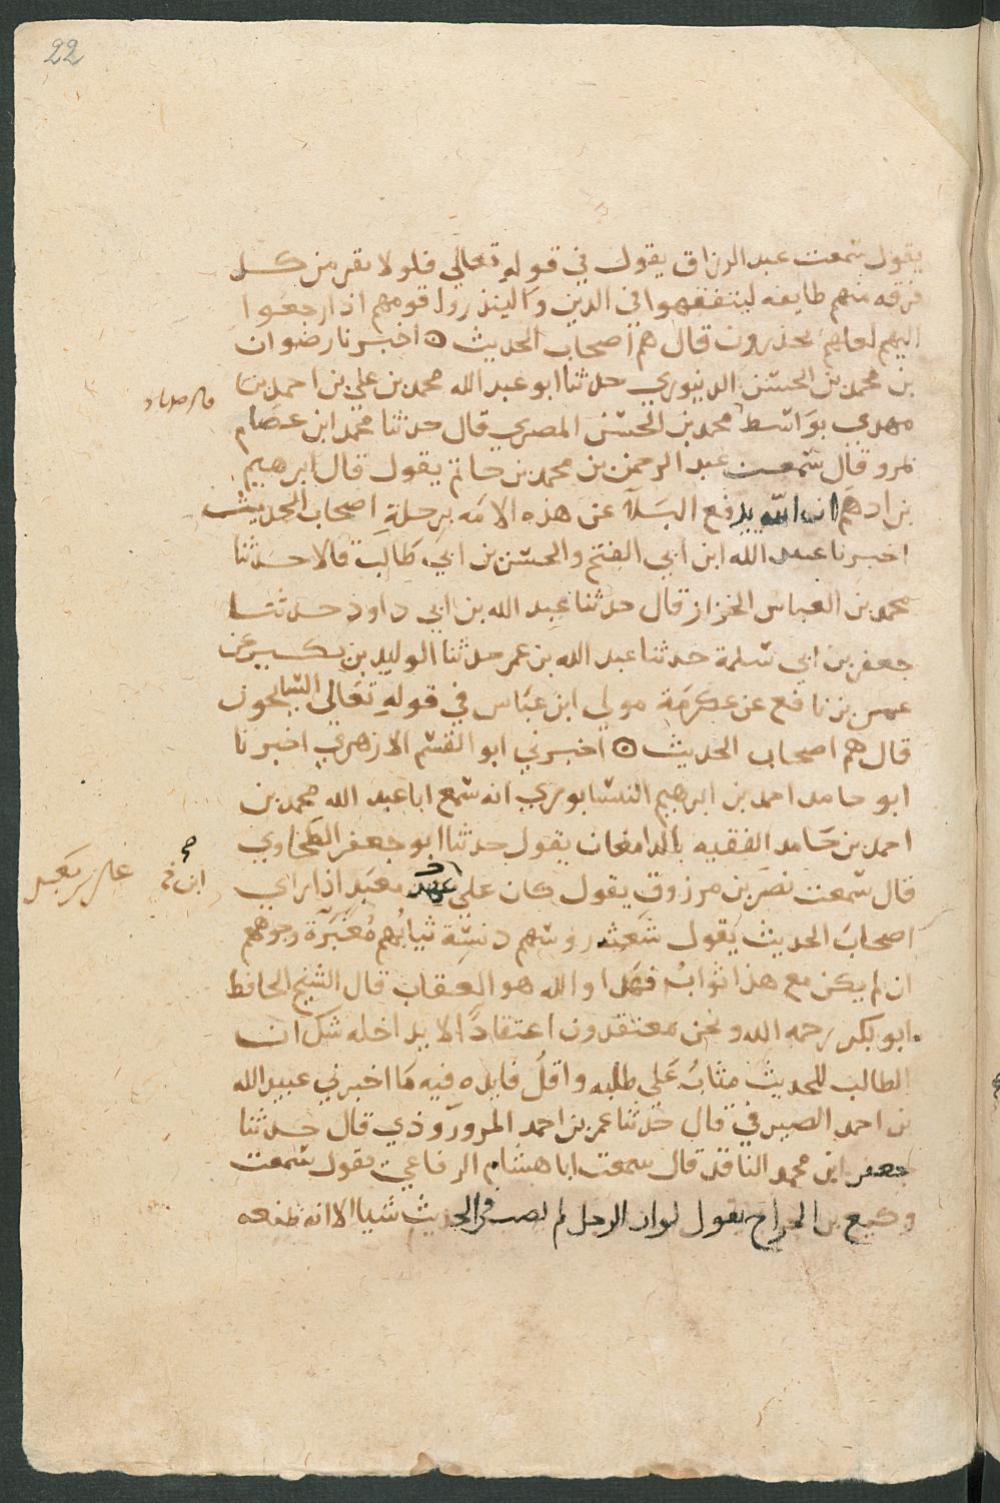 22
يقول سمعت عبد الرزاق يقول في قوله تعالي فلولا نفر من كل
فرقه منهم طايفه ليتفقهوا في الدين ولينذروا قومهم اذا رجعوا
اليهم لعلهم يحذرون قال هم اصحاب الحديث ۞ اخبرنا رضوان
بن محمد بن الحسن الدينوري حدثنا ابو عبد الله محمد بن علي بن احمد بن
مهدي محمد بن الحسن المصري قال حدثنا محمد ابن عصام
قال سمعت عبد الرحمن بن محمد بن حاتم يقول قال ابرهيم
بن ادهم ان الله يدفع البلا عن هذه الامه برحلة اصحاب الحديث
اخبرنا عبيد الله ابن ابي الفتح والحسن بن ابي طالب قالا حدثنا
محمد بن العباس الخزاز قال حدثنا عبد الله بن ابي داود حدثنا
جعفر بن ابي سلمة حدثنا عبد الله بن عمر حدثنا الوليد بن بكير عن
عمر بن نافع عن عكرمة مولي ابن عباس في قوله تعالي السايحون
قال هم اصحاب الحديث ۞ اخبرني ابو القسم الازهري اخبرنا
ابو حامد احمد بن ابرهيم النيسابوري انه سمع ابا عبد الله محمد بن
احمد بن حامد الفقيه بالدامغان يقول حدثنا ابو جعفر الطحاوي
قال سمعت نصر بن مرزوق يقول كان علي معبد اذا راي
اصحاب الحديث يقول شعثه روسهم دنسة ثيابهم مغبرة وجوههم
ان لم يكن مع هذا ثواب فهذا والله هو العقاب قال الشيخ الحافظ
ابو بكر رحمه الله ونحن معتقدون اعتقادا لا يداخله شك ان
الطالب للحديث مثاب علي طلبه واقل فايده فيه ما اخبرني عبيد الله
بن احمد الصيرفي قال حدثنا عمر بن احمد المروروذي قال حدثنا
جعفر ابن محمد الناقد قال سمعت ابا هشام الرفاعي يقول سمعت
وكيع بن الجراح يقول لو ان الرجل لم يصب في الحديث شيا الا انه